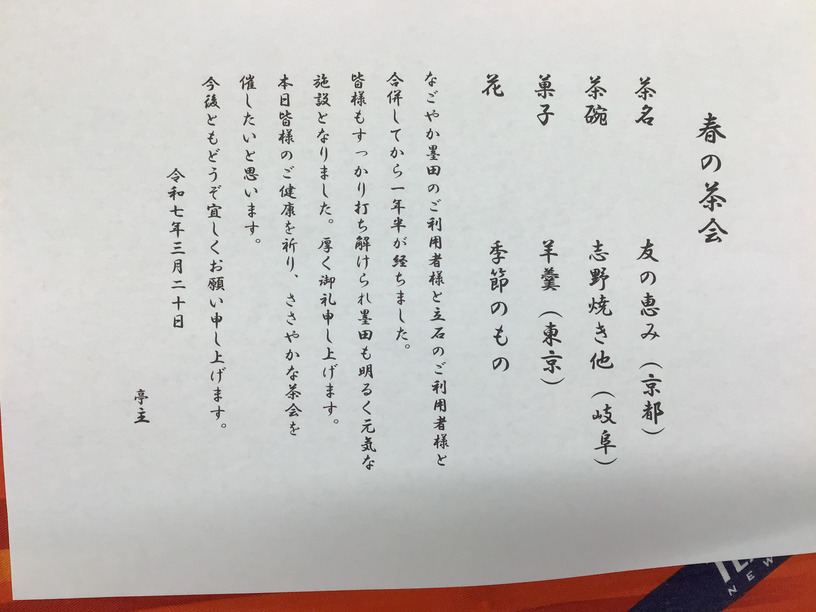 春の茶会
茶名 友の恵み（京都）
茶碗 志野焼き他（岐阜）
菓子 羊羹（東京）
花 季節のもの
なごやか墨田のご利用者様と立石のご利用者様と
合併してから一年半が経ちました。
皆様もすっかり打ち解けられ墨田も明るく元気な
施設となりました。厚く御礼申し上げます。
本日皆様のご健康を祈り、ささやかな茶会を
催したいと思います。
今後ともどうぞ宜しくお願い申し上げます。
令和七年三月二十日
亭主
NEW